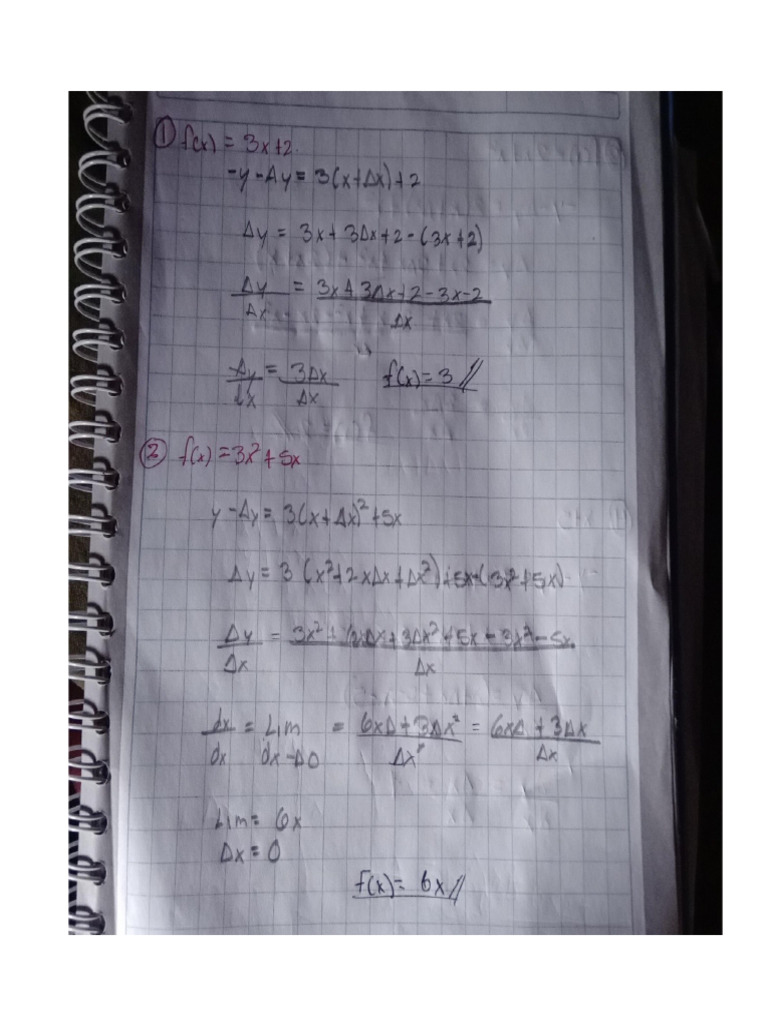 ① f(x) = 3x+2.
-y-Δy = 3(x+Δx)+2
Δy = 3x+3Δx+2-(3x+2)
Δy/Δx = 3x+3Δx+2-3x-2/Δx
Δy/dx = 3Δx/Δx f(x)=3//
② f(x) = 3x²+5x
y-Δy = 3(x+Δx)²+5x
Δy = 3(x²+2xΔx+Δx²)+5x-(3x²+5x)
Δy/Δx = 3x²+ 3Δx²+5x-3x²-5x/Δx
dx/dx = Lim dx-Δ0 = 6xΔ+3Δx²/Δx = 6xΔ+3Δx/Δx
Lim = 6x
Δx = 0
f(x) = 6x//